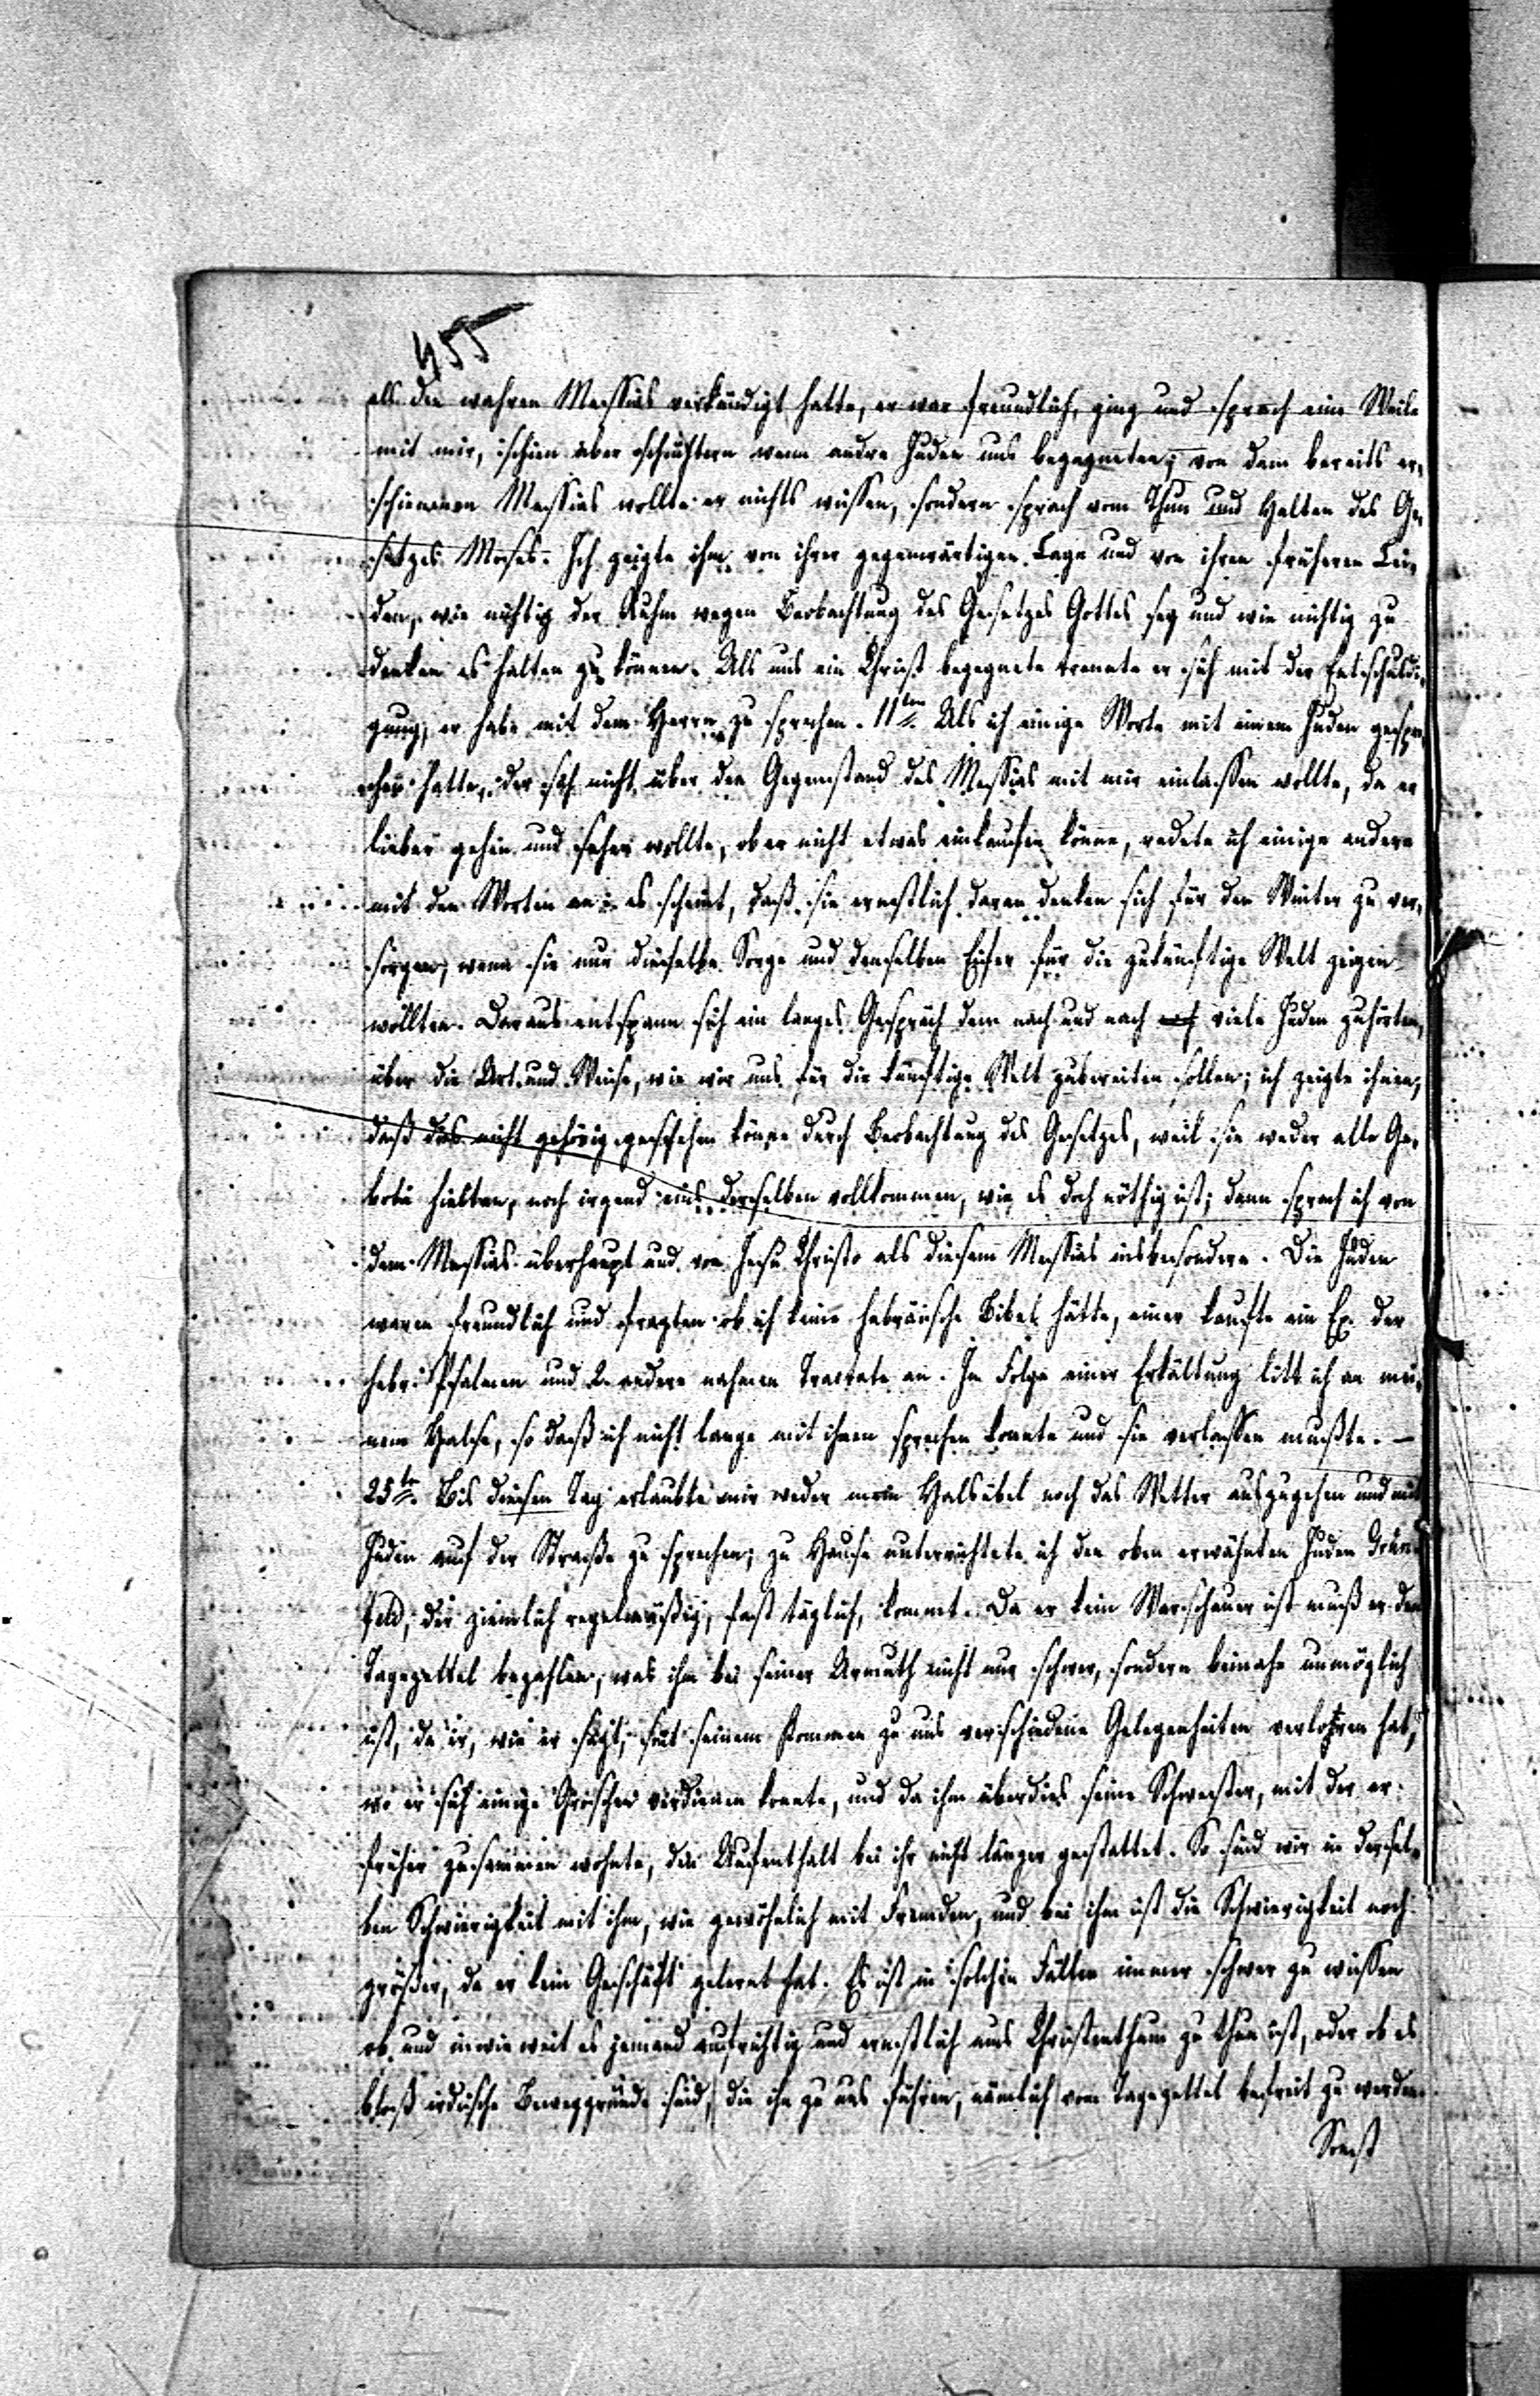 455
als den wahren Messias verkündigt hatte, er war freundlich, ging und sprach eine Weile
mit mir, schien aber schüchtern wenn andre Juden uns begegneten; von dem bereits er„
schienenen Messias wollte er nichts wissen, sondern sprach vom Thun und Halten des Ge„
setzes Moses. Ich zeigte ihm von ihrer gegenwärtigen Lage und von ihren früheren Lei„
den, wie nichtig der Ruhm wegen Beobachtung des Gesetzes Gottes sey und wie nichtig zu
denken es halten zu können. Als uns ein Christ begegnete trennte er sich mit der Entschuldi„
gung, er habe mit dem Herrn zu sprechen. 11ten Als ich einige Worte mit einem Juden gespro„
chen hatte, der sich nicht über den Gegenstand des Messias mit mir einlassen wollte, da er
lieber gehen und sehen wollte, ob er nicht etwas einkaufen könne, redete ich einige andere
mit den Worten an: es scheint, daß sie ernstlich daran denken sich für den Winter zu ver„
sorgen, wenn sie nur dieselbe Sorge und denselben Eifer für die zukünftige Welt zeigen
wollten. Daraus entspann sich ein langes Gespräch dem nach und nach viele Juden zuhörten,
über die Art und Weise, wie wir uns für die künftige Welt zubereiten sollen; ich zeigte ihnen,
daß das nicht gehörig geschehen könne durch Beobachtung des Gesetzes, weil sie weder alle Ge„
bote hielten, noch irgend eins derselben vollkommen, wie es doch nöthig ist; dann sprach ich von
dem Messias überhaupt und von Jesu Christo als diesem Messias insbesondere. Die Juden
waren freundlich und fragten ob ich keine hebräische Bibel hätte, einer kaufte ein Ex. der
hebr. Psalmen und 2 andere nahmen Tractate an. In Folge einer Erkältung litt ich an mei„
nem Halse, so daß ich nicht lange mit ihnen sprechen konnte und sie verlassen mußte. —
25te. Bis diesen Tag erlaubte mir weder mein Halsübel noch das Wetter auszugehen und mit
Juden auf der Straße zu sprechen; zu Hause unterrichtete ich den oben erwähnten Juden Grün„
feld, der ziemlich regelmäßig, fast täglich, kommt. Da er kein Warschauer ist muß er den
Tagezettel bezahlen, was ihm bei seiner Armuth nicht nur schwer, sondern beinahe unmöglich
ist, da er, wie er sagt, seit seinem Kommen zu uns verschiedene Gelegenheiten verloren hat,
wo er sich einige Groschen verdienen konnte, und da ihm überdies seine Schwester, mit der er
früher zusammen wohnte, den Aufenthalt bei ihr nicht länger gestattet. So sind wir in dersel„
ben Schwierigkeit mit ihm, wie gewöhnlich mit Fremden, und bei ihm ist die Schwierigkeit noch
größer, da er kein Geschäft gelernt hat. Es ist in solchen Fällen immer schwer zu wissen
ob und inwie weit es jemand aufrichtig und ernstlich ums Christenthum zu thun ist, oder ob es
bloß irdische Beweggründe sind, die ihn zu uns führen, nämlich vom Tagezettel befreit zu werden.
Sonst